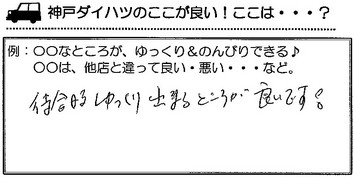 神戸ダイハツのここが良い！ここは・・・？
例：○○なところが、ゆっくり＆のんびりできる♪
○○は、他店と違って良い・悪い・・・など。
待合がゆっくり出来るところが良いです！